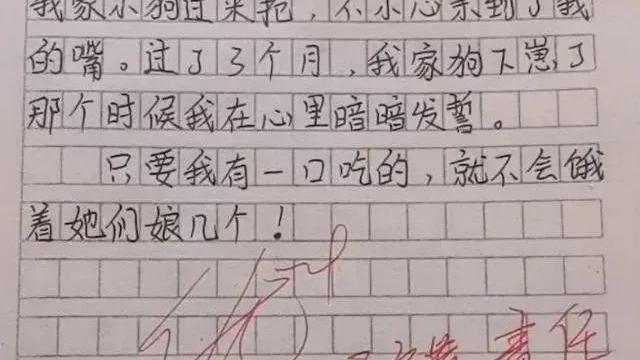 我家小狗过来抢，不小心亲到了我
的嘴。过了3个月，我家狗下崽了
那个时候我在心里暗暗发誓。
只要我有一口吃的，就不会饿
着她们娘几个！
责任